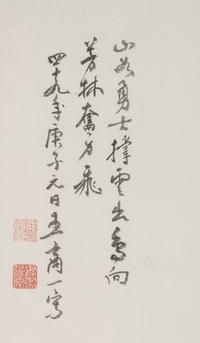 山如勇士撑雲出鳥向
芳林奮力飛
四十九年庚子元日王商一寫